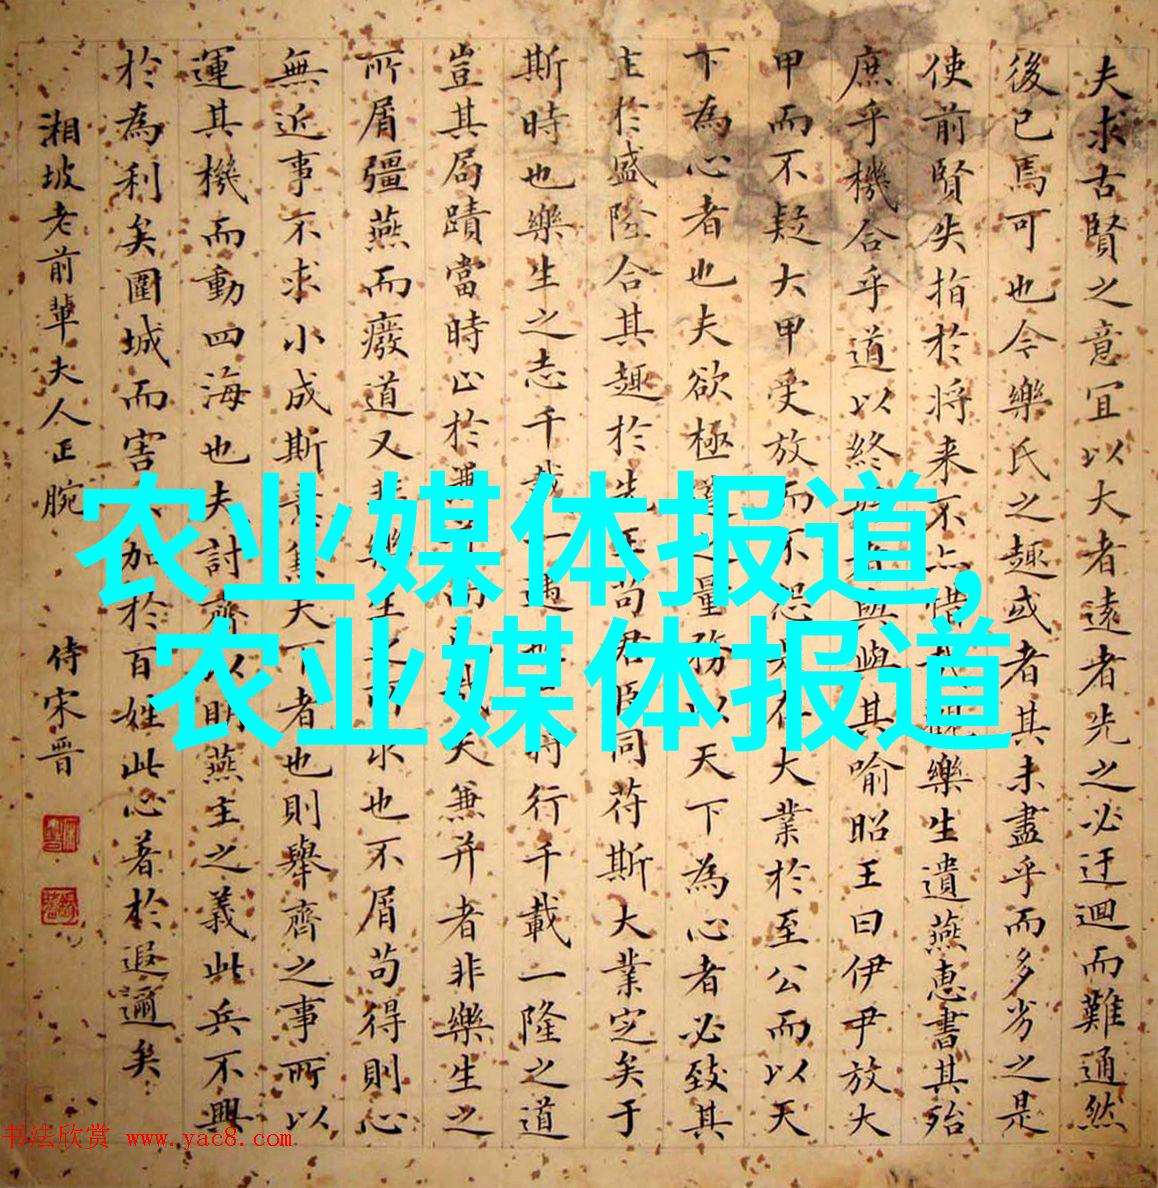 夫求古賢之意宜以大者遠者先之必迂迴而難通然
後已焉可也今樂氏之趣或者其未盡乎而多劣之是
使前賢失指於將来不亦惜哉觀樂生遺燕惠書其殆
庶乎機合乎道以終始者與其喻昭王曰伊尹放大
甲而不疑大甲受放而不怨是存大業於至公而以天
下為心者也夫欲極道之量務以天下為心者必致其
主於盛隆合其趣於先王苟君臣同苻斯大業定矣于
斯時也樂生之志千載一遇也将行千載一隆之道
豈其局蹟當時止於兼并而已哉夫兼并者非樂生之
所屑彊燕而廢道又非樂生之所求也不屑苟得則心
無近事不求小成斯意兼天下者也則舉齊之事所以
運其機而動四海也夫討齊以明燕主之義此兵不興
於為利矣圍城而害不加於百姓此心著於遐邇矣
湘坡老前輩夫人正腕
侍宋晋
农业媒体报道,
农业媒体报道
书法欣赏 www.yac8.com